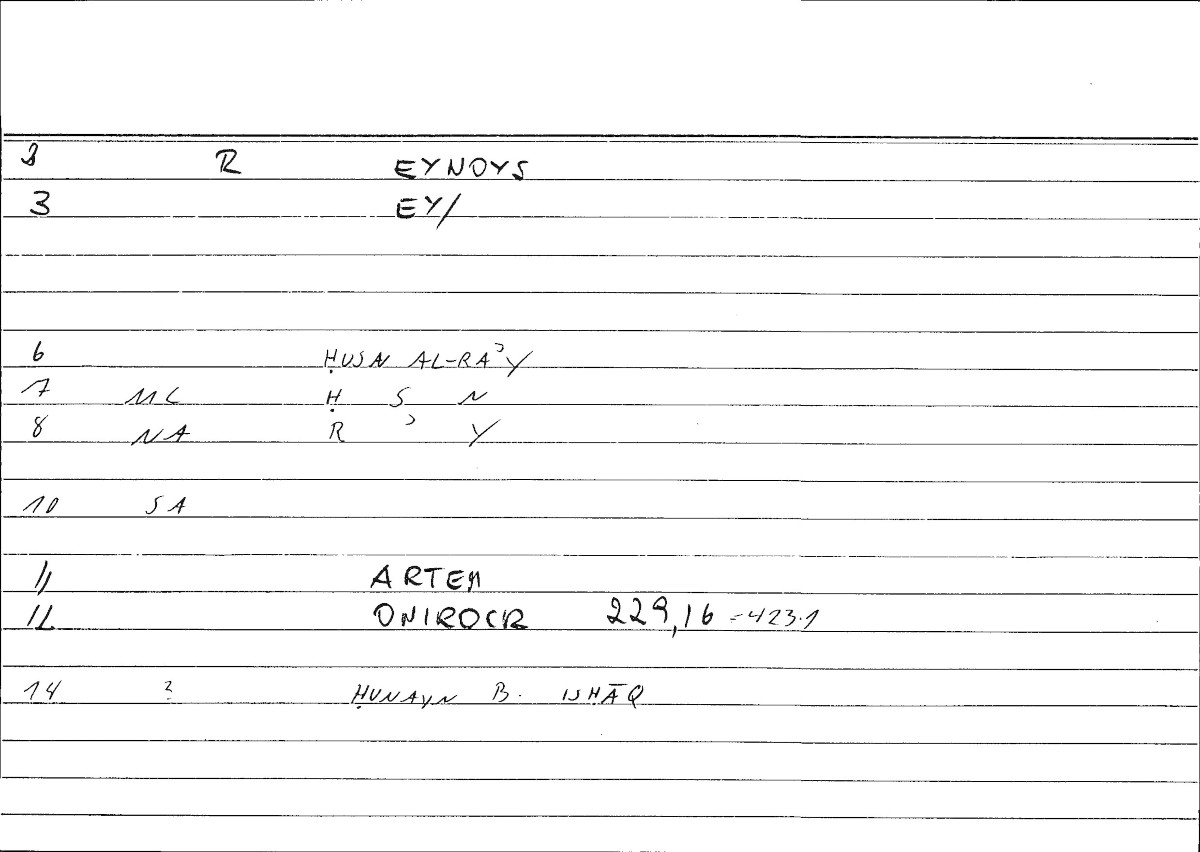 2 R EYNOYS
3 EY/
6 ḤUSN AL-RAʾY
7 MC Ḥ S N
8 NA R ʾ Y
10 SA
11 ARTEM
12 ONIROCR 229,16 = 423.1
14 ? ḤUNAYN B. ISḤĀQ